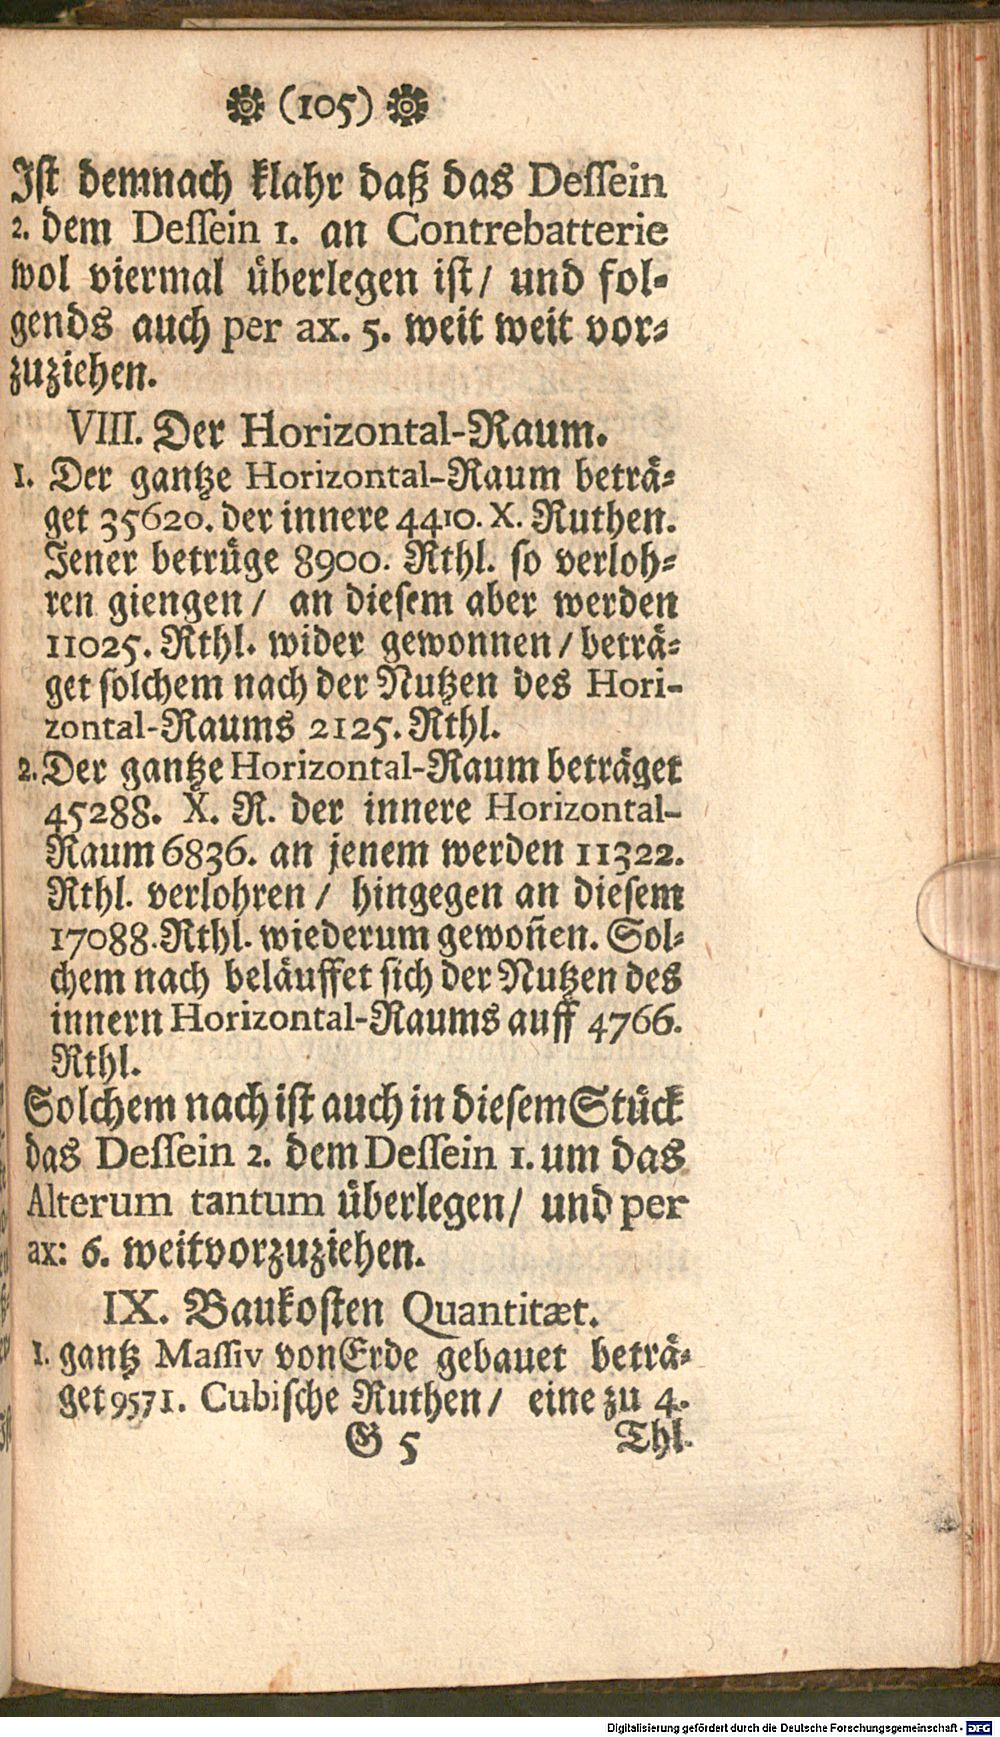 (105)
Ist demnach klahr daß das Dessein
2. dem Dessein 1. an Contrebatterie
wol viermal überlegen ist/ und fol-
gends auch per ax. 5. weit weit vor-
zuziehen.
VIII. Der Horizontal-Raum.
1. Der gantze Horizontal-Raum beträ-
get 35620. der innere 4410. X. Ruthen.
Jener betrüge 8900. Rthl. so verloh-
ren giengen/ an diesem aber werden
11025. Rthl. wider gewonnen/ beträ-
get solchem nach der Nutzen des Hori-
zontal-Raums 2125. Rthl.
2. Der gantze Horizontal-Raum beträget
45288. X. R. der innere Horizontal-
Raum 6836. an jenem werden 11322.
Rthl. verlohren/ hingegen an diesem
17088. Rthl. wiederum gewoñen. Sol-
chem nach beläuffet sich der Nutzen des
innern Horizontal-Raums auff 4766.
Rthl.
Solchem nach ist auch in diesem Stück
das Dessein 2. dem Dessein 1. um das
Alterum tantum überlegen/ und per
ax: 6. weit vorzuziehen.
IX. Baukosten Quantitæt.
1. gantz Massiv von Erde gebauet beträ-
get 9571. Cubische Ruthen/ eine zu 4.
G 5 Thl.
Digitalisierung gefördert durch die Deutsche Forschungsgemeinschaft - DFG